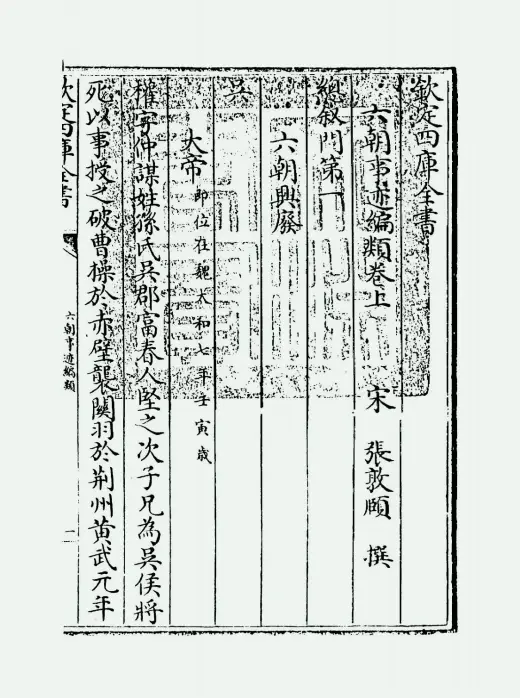 欽定四庫全書
六朝事迹編類卷上
宋 張敦頤 撰
總敘門第一
六朝興廢
吳
大帝 即位在魏太和七年壬寅歲
權字仲謀姓孫氏吳郡富春人堅之次子兄為吳侯將
死以事授之破曹操於赤壁襲關羽於荆州黄武元年
欽定四庫全書
六朝事迹編類
一